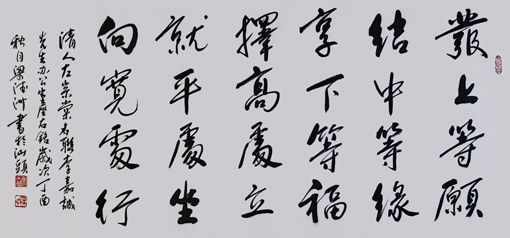 發上等願
結中等緣
享下等福
擇高處立
就平處坐
向寬處行
清人左宗棠名聯李嘉誠
先生辦公室座右銘歲次丁酉
秋月梁德洲書於汕頭